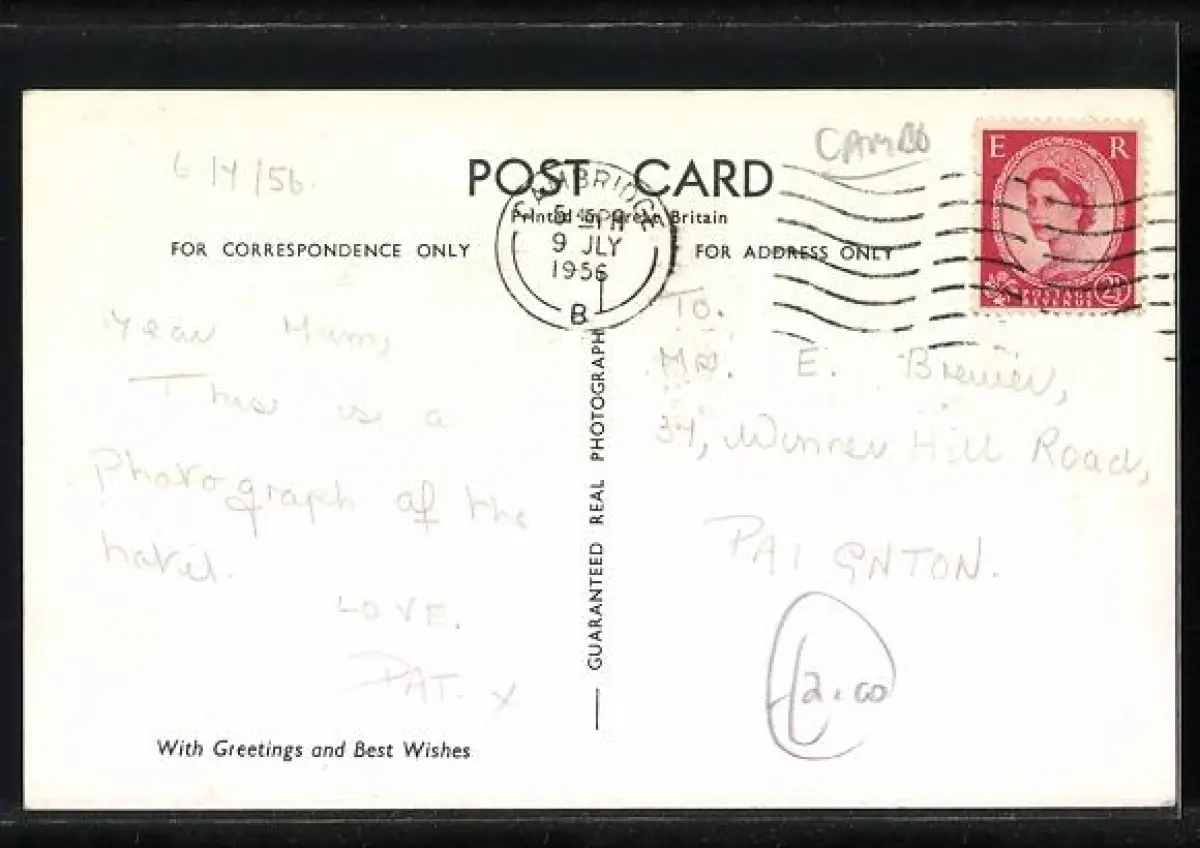 6/7/56.
CAMBS
POST CARD
Printed in Great Britain
FOR CORRESPONDENCE ONLY
FOR ADDRESS ONLY
CAMBRIDGE
5 45 PM
9 JLY
1956
B
E R
POSTAGE
REVENUE
2½D
Dear Mum,
This is a
Photograph of the
hotel.
LOVE.
PAT. X
With Greetings and Best Wishes
GUARANTEED REAL PHOTOGRAPH
To.
Mrs. E.
Hill Road,
PAIGNTON.
£2.00